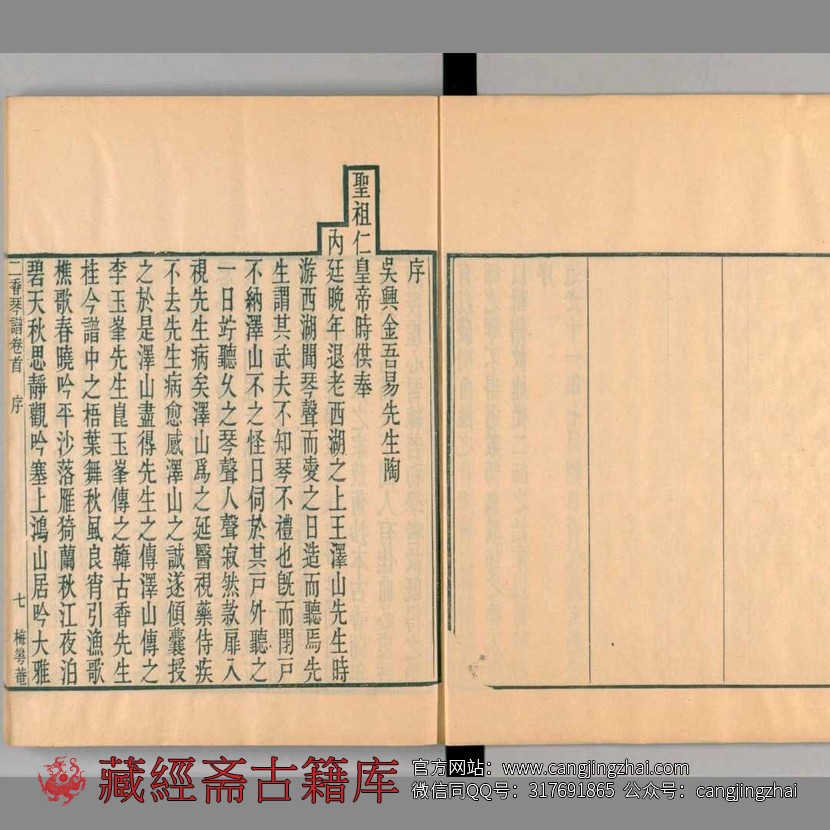 序
吳興金吾易先生陶
聖祖仁皇帝時供奉
內廷晚年退老西湖之上王澤山先生時
游西湖聞琴聲而愛之日造而聽焉先
生謂其武夫不知琴不禮也旣而閉戸
不納澤山不之怪日伺於其戸外聽之
一日竚聽久之琴聲人聲寂然款扉入
視先生病矣澤山爲之延醫視藥侍疾
不去先生病愈感澤山之誠遂傾囊授
之於是澤山盡得先生之傳澤山傳之
李玉峯先生崑玉峯傳之韓古香先生
桂今譜中之梧葉舞秋風良宵引漁歌
樵歌春曉吟平沙落雁猗蘭秋江夜泊
碧天秋思靜觀吟塞上鴻山居吟大雅
二香琴譜卷首 序 七 梅花菴
藏經斋古籍库
官方网站：www.cangjingzhai.com
微信同QQ号：317691865 公众号：cangjingzhai